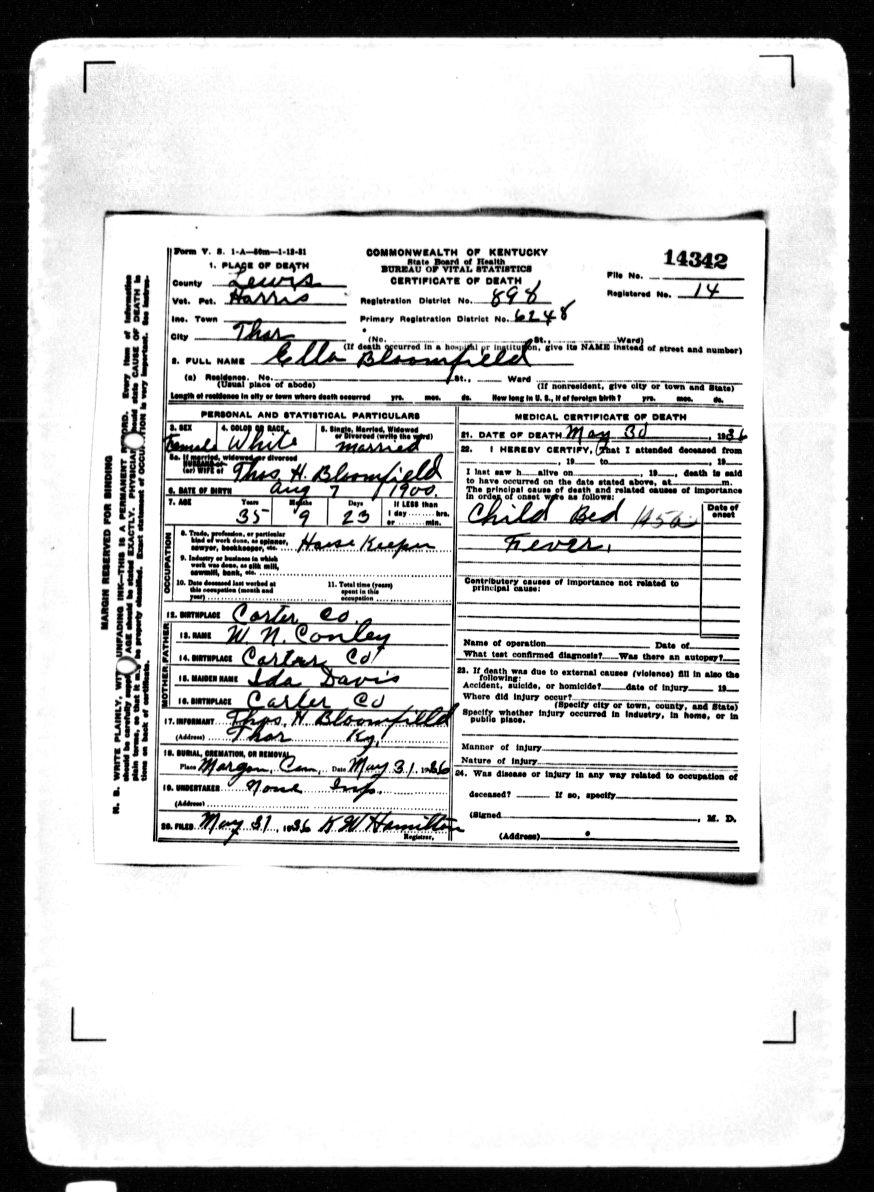 Form V. S. 1-A—50m—1-12-31
COMMONWEALTH OF KENTUCKY
State Board of Health
BUREAU OF VITAL STATISTICS
CERTIFICATE OF DEATH
14342
File No.
Registered No. 14
1. PLACE OF DEATH
County Lewis
Vot. Pct. Harris
Registration District No. 898
Inc. Town
Primary Registration District No. 6248
City Thor
(No. St., Ward)
(If death occurred in a hospital or institution, give its NAME instead of street and number)
2. FULL NAME Ella Bloomfield
(a) Residence. No. St., Ward
(Usual place of abode) (If nonresident, give city or town and State)
Length of residence in city or town where death occurred yrs. mos. ds. How long in U. S., if of foreign birth? yrs. mos. ds.
PERSONAL AND STATISTICAL PARTICULARS
3. SEX 4. COLOR OR RACE 5. Single, Married, Widowed
or Divorced (write the word)
Female White married
5a. If married, widowed, or divorced
HUSBAND of
(or) WIFE of Thos. H. Bloomfield
6. DATE OF BIRTH Aug 7 1900
7. AGE Years Months Days If LESS than
35 9 23 1 day......hrs.
or......min.
OCCUPATION
8. Trade, profession, or particular
kind of work done, as spinner,
sawyer, bookkeeper, etc. House Keeper
9. Industry or business in which
work was done, as silk mill,
sawmill, bank, etc.
10. Date deceased last worked at
this occupation (month and
year)
11. Total time (years)
spent in this
occupation
12. BIRTHPLACE Carter Co.
FATHER
13. NAME W. N. Conley
14. BIRTHPLACE Carter Co
MOTHER
15. MAIDEN NAME Ida Davis
16. BIRTHPLACE Carter Co
17. INFORMANT Thos. H. Bloomfield
(Address) Thor Ky.
18. BURIAL, CREMATION, OR REMOVAL
Place Morgan Cem, Date May 31, 1936
19. UNDERTAKER None Imp.
(Address)
20. FILED May 31, 1936 K W Hamilton
Registrar.
MEDICAL CERTIFICATE OF DEATH
21. DATE OF DEATH May 30, 1936
22. I HEREBY CERTIFY, That I attended deceased from
, 19 to , 19
I last saw h alive on , 19 , death is said
to have occurred on the date stated above, at m.
The principal cause of death and related causes of importance
in order of onset were as follows:
Date of
onset
Child Bed 145a
Fever,
Contributory causes of importance not related to
principal cause:
Name of operation Date of
What test confirmed diagnosis? Was there an autopsy?
23. If death was due to external causes (violence) fill in also the
following:
Accident, suicide, or homicide? date of injury 19
Where did injury occur?
(Specify city or town, county, and State)
Specify whether injury occurred in industry, in home, or in
public place.
Manner of injury
Nature of injury
24. Was disease or injury in any way related to occupation of
deceased? If so, specify
(Signed , M. D.
(Address)
MARGIN RESERVED FOR BINDING
N. B. WRITE PLAINLY, WITH UNFADING INK—THIS IS A PERMANENT RECORD. Every item of information
should be carefully supplied. AGE should be stated EXACTLY. PHYSICIANS should state CAUSE OF DEATH in
plain terms, so that it may be properly classified. Exact statement of OCCUPATION is very important. See instruc-
tions on back of certificate.